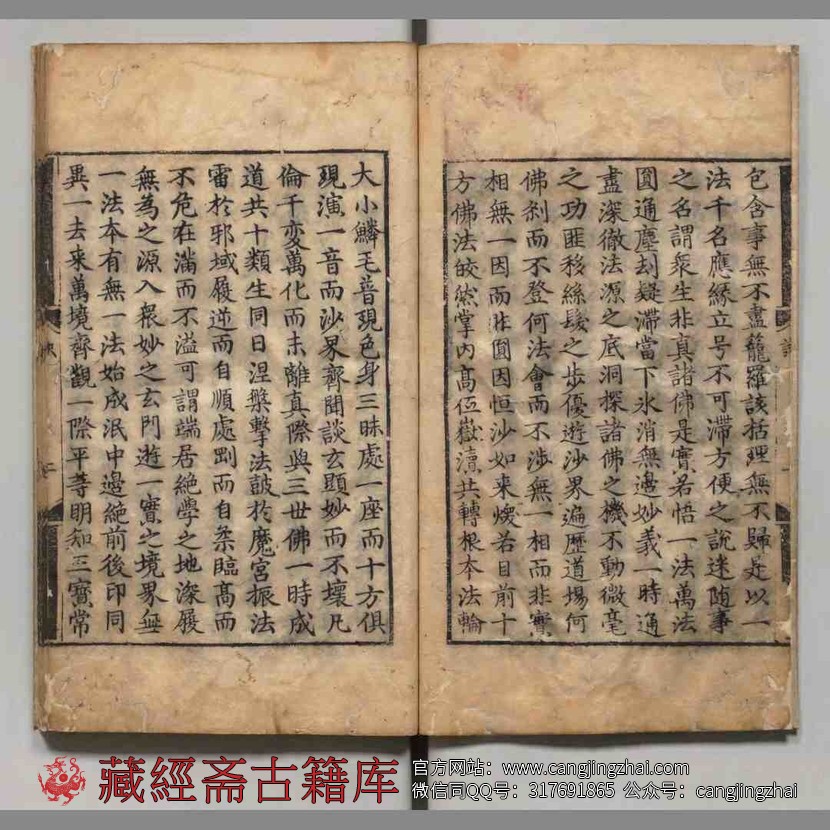 包含事無不盡籠羅該括理無不歸是以一
法千名應緣立号不可滯方便之說迷随事
之名謂衆生非真諸佛是實若悟一法萬法
圓通塵刧疑滯當下氷消無邊妙義一時通
盡深徹法源之底洞探諸佛之機不動微毫
之功匪移絲髮之步優遊沙界遍歷道場何
佛刹而不登何法會而不涉無一相而非實
相無一因而非圓因恒沙如来煥若目前十
方佛法皎然掌内高低嶽瀆共轉根本法輪
大小鱗毛普現色身三昧處一座而十方俱
現演一音而沙界齊聞談玄顯妙而不壞凡
倫千變萬化而未離真際與三世佛一時成
道共十類生同日涅槃擊法皷於魔宮振法
雷於邪域履逆而自順處剛而自柔臨高而
不危在滿而不溢可謂端居絶學之地深履
無為之源入衆妙之玄門遊一實之境界無
一法本有無一法始成泯中邊絶前後印同
異一去来萬境齊觀一際平等明知三寳常
訣
二
藏經斋古籍库
官方网站：www.cangjingzhai.com
微信同QQ号：317691865 公众号：cangjingzhai